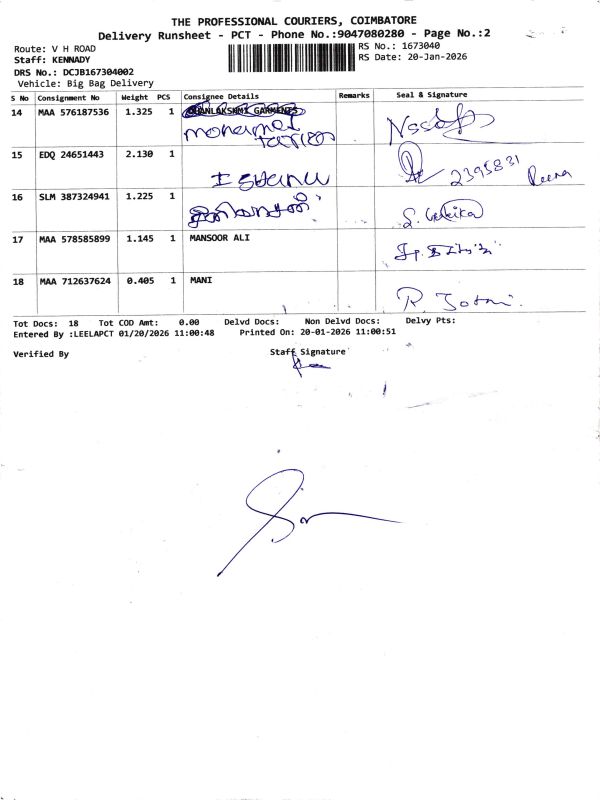 THE PROFESSIONAL COURIERS, COIMBATORE
Delivery Runsheet - PCT - Phone No.:9047080280 - Page No.:2
Route: V H ROAD
RS No.: 1673040
Staff: KENNADY
RS Date: 20-Jan-2026
DRS No.: DCJB167304002
Vehicle: Big Bag Delivery
S No Consignment No Weight PCS Consignee Details Remarks Seal & Signature
14 MAA 576187536 1.325 1 DHANLAKSHMI GARMENTS
mohamed
15 EDQ 24651443 2.130 1
2395831
16 SLM 387324941 1.225 1
17 MAA 578585899 1.145 1 MANSOOR ALI
18 MAA 712637624 0.405 1 MANI
Tot Docs: 18 Tot COD Amt: 0.00 Delvd Docs: Non Delvd Docs: Delvy Pts:
Entered By :LEELAPCT 01/20/2026 11:00:48 Printed On: 20-01-2026 11:00:51
Verified By Staff Signature